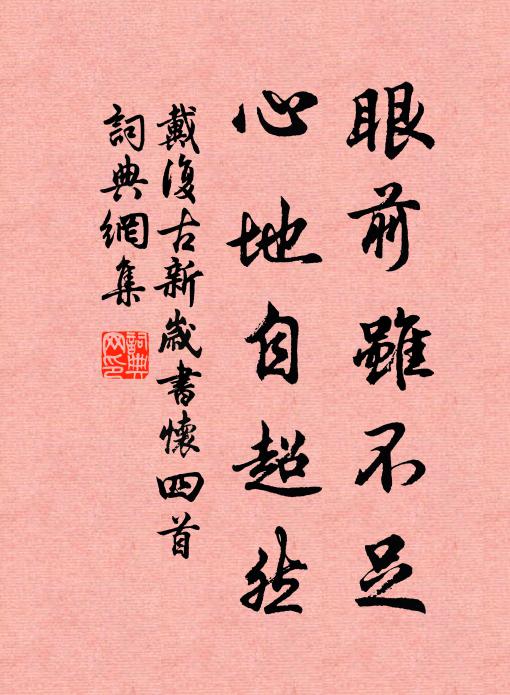 眼前雖不足
心地自超然
戴復古新歲書懷四首
詞典網集
詞典网印